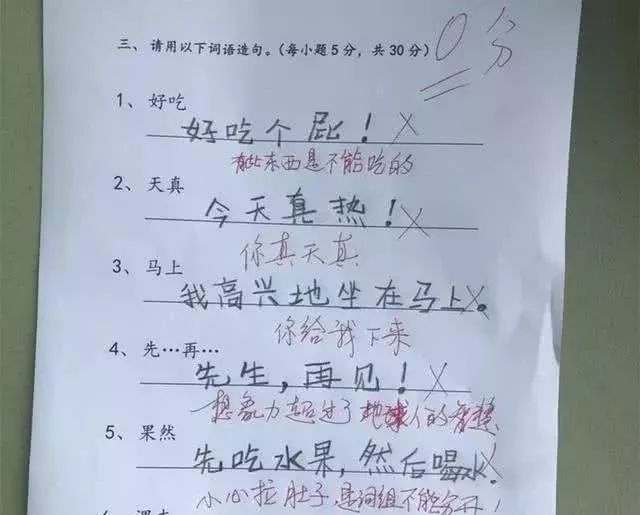 三、请用以下词语造句。(每小题5分，共30分)
0分
1、好吃
好吃个屁！
有些东西是不能吃的
2、天真
今天真热！
你真天真
3、马上
我高兴地坐在马上。
你给我下来
4、先…再…
先生，再见！
想象力超过了地球人的智慧
5、果然
先吃水果，然后喝水.
小心拉肚子,是词组不能分开！